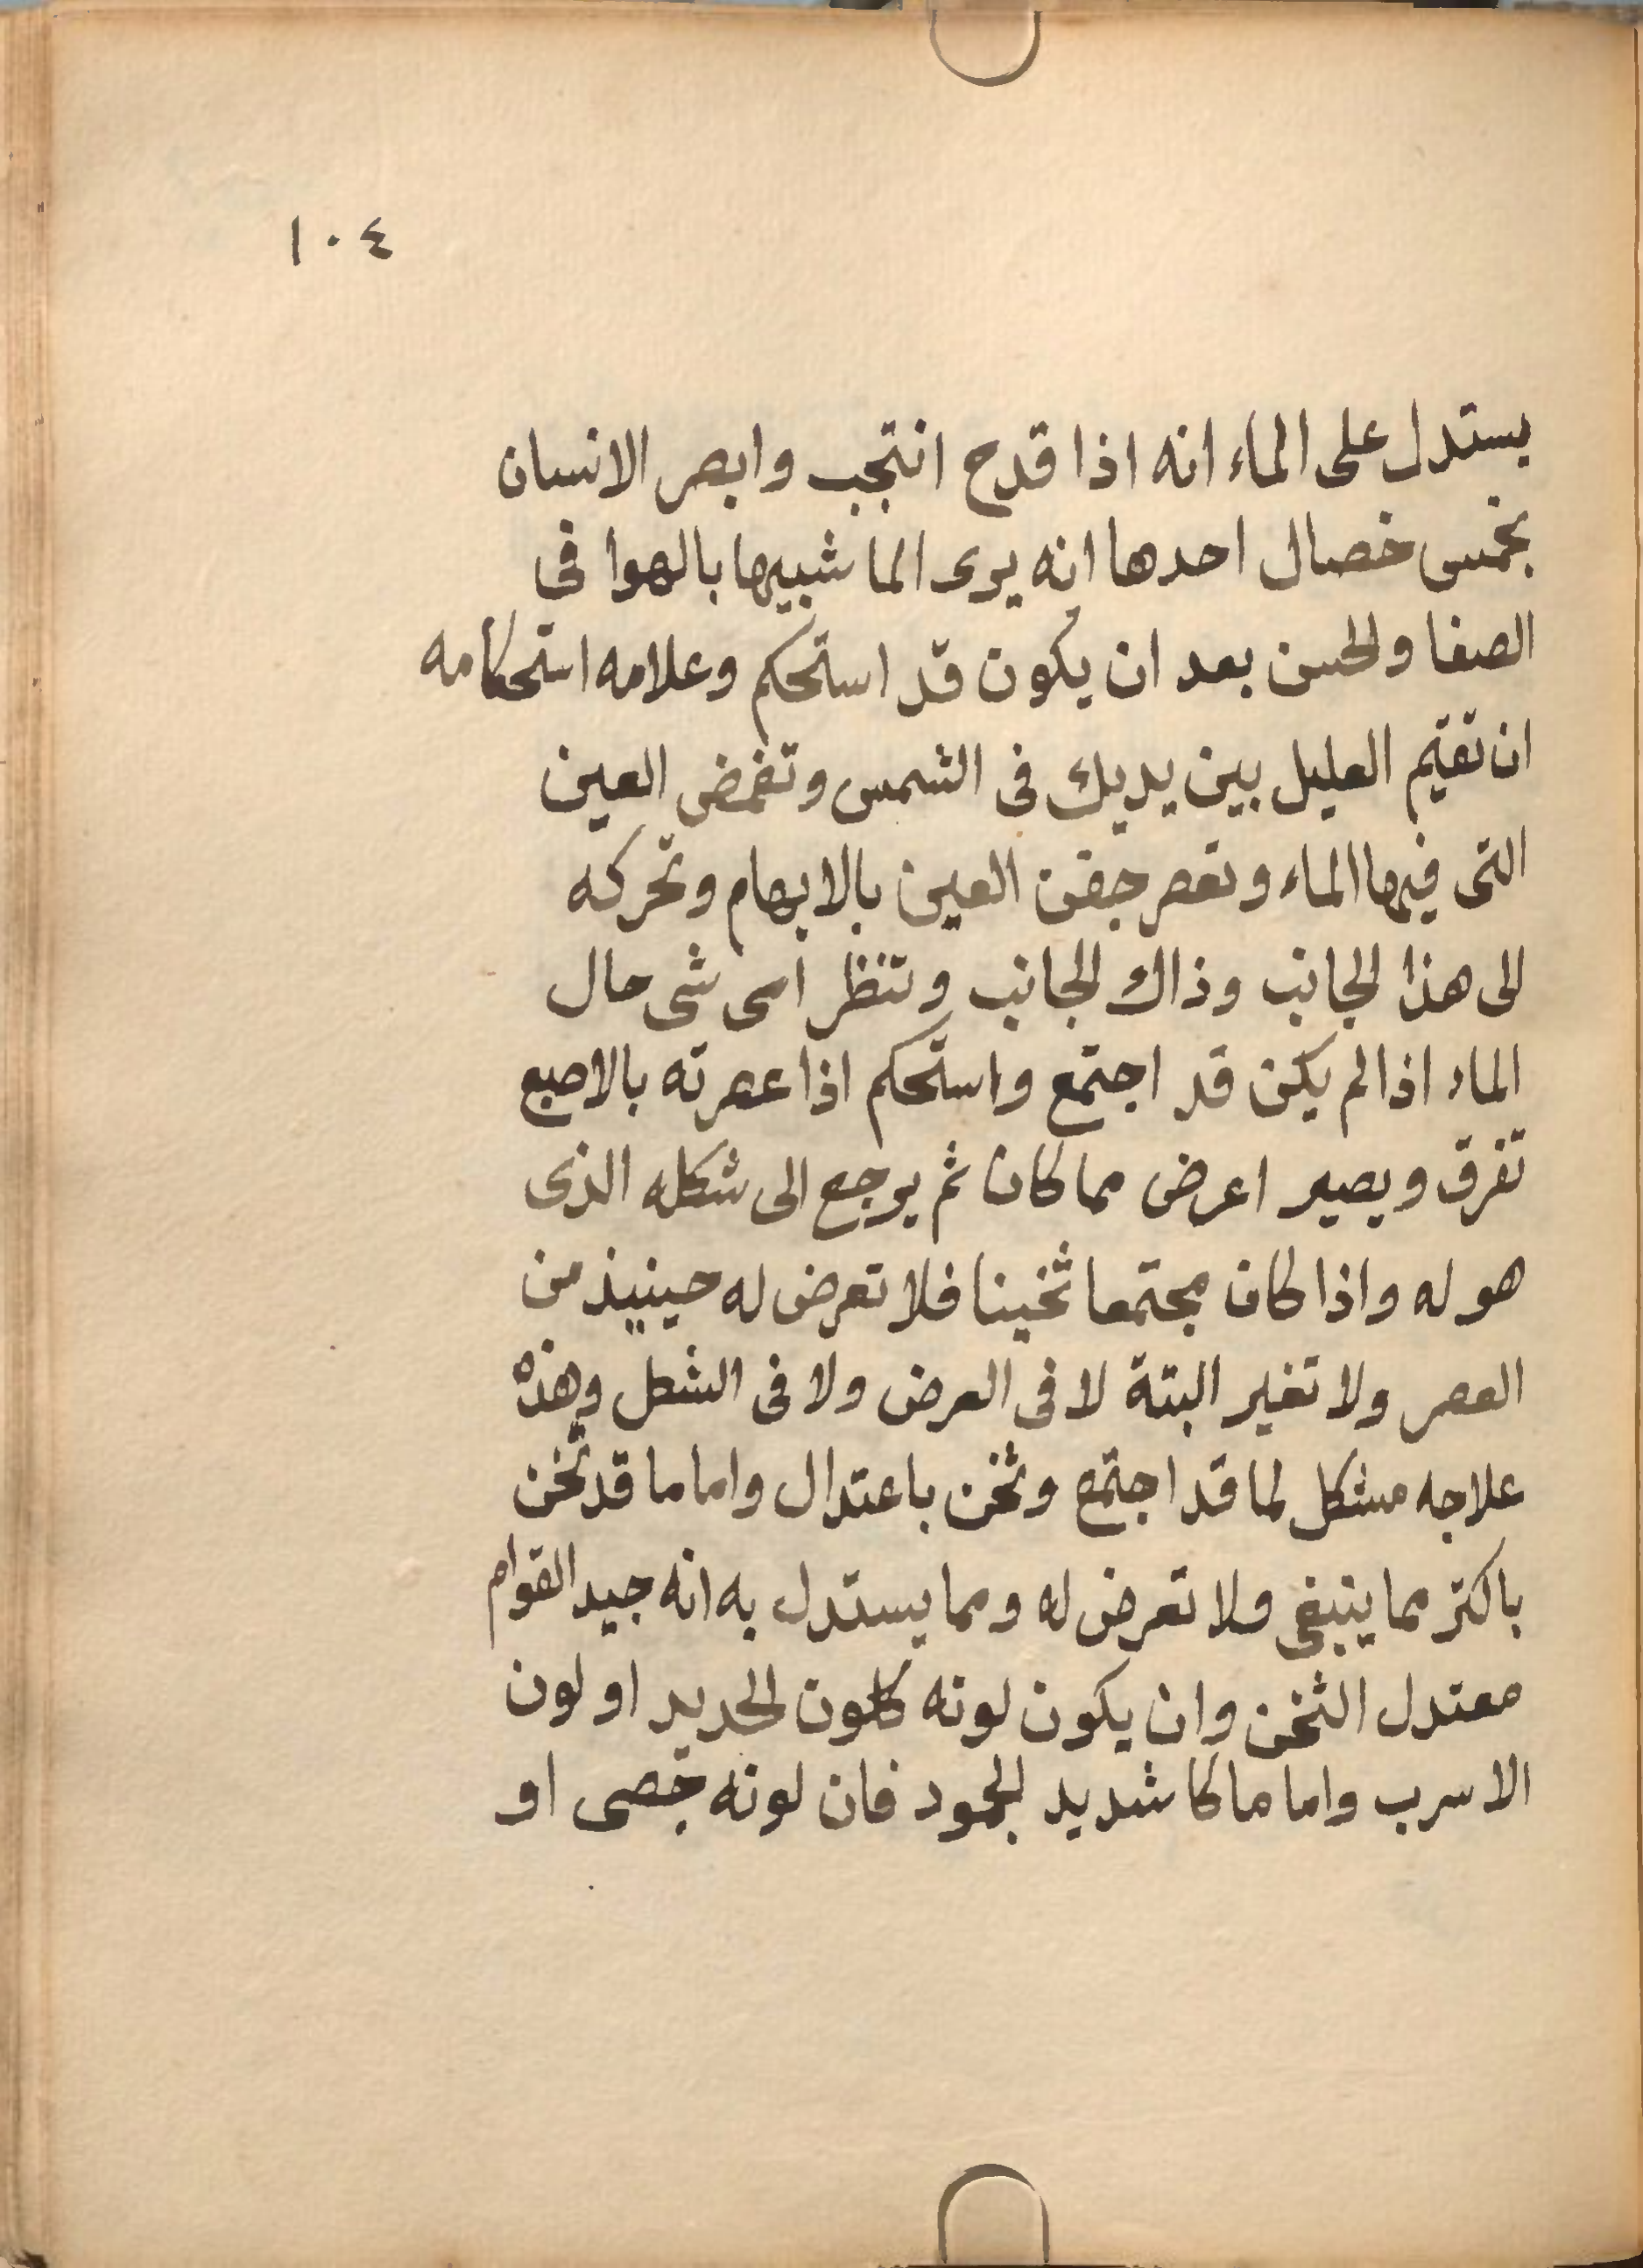 ١٠٤
يستدل على الماء انه اذا قدح انتجب وابصر الانسان
بخمس خصال احدها انه يرى الما شبيها بالهوا فى
الصفا والحسن بعد ان يكون قد استحكم وعلامه استحكامه
ان تقيم العليل بين يديك فى الشمس وتغمض العين
التى فيها الماء وتعصر جفن العين بالابهام وتحركه
الى هذا الجانب وذاك الجانب وتنظر اى شى حال
الماء اذا لم يكن قد اجتمع واستحكم اذا عصرته بالاصبع
تفرق ويصير اعرض مما كان ثم يرجع الى شكله الذى
هو له واذا كان مجتمعا ثخينا فلا تعرض له حينيذ من
العصر ولا تغير البتة لا فى العرض ولا فى الشكل وهذه
علاجه مشكل لما قد اجتمع وثخن باعتدال واما ما قد ثخن
باكثر مما ينبغى ولا تعرض له ومما يستدل به انه جيد القوام
معتدل الثخن وان يكون لونه كلون الحديد او لون
الاسرب واما ما كا شديد الجمود فان لونه جصى او